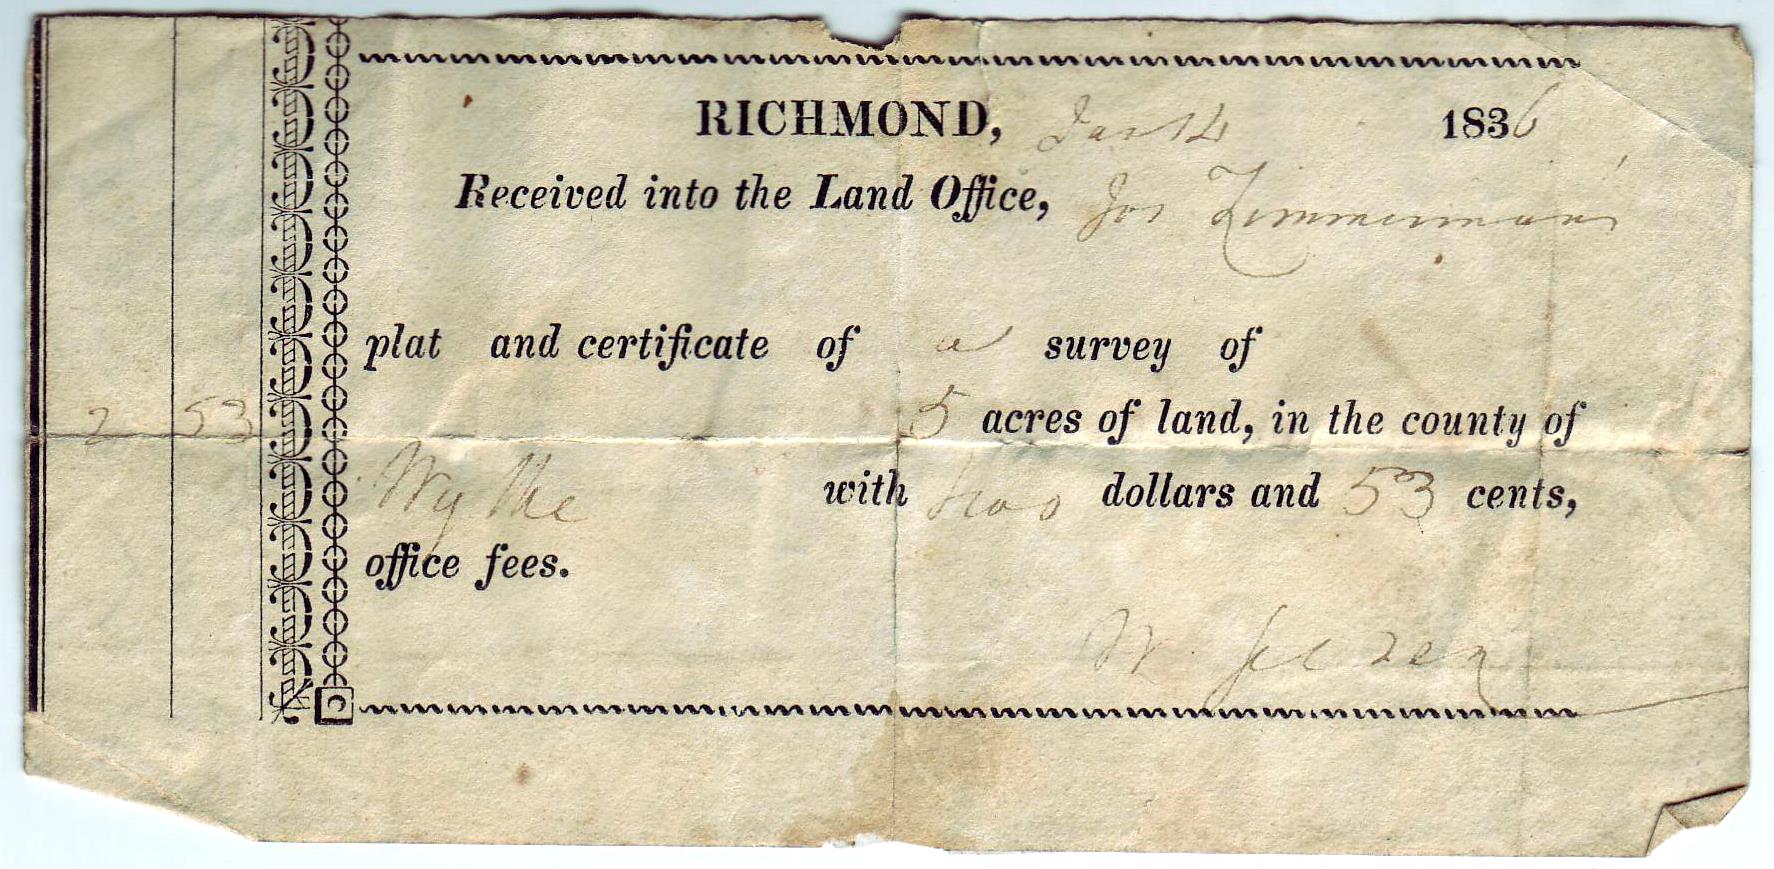 RICHMOND, Jan 14 1836
Received into the Land Office, Jos Zimmerman's
plat and certificate of a survey of
2 53 5 acres of land, in the county of
Wythe with two dollars and 53 cents,
office fees.
W. Selden
C